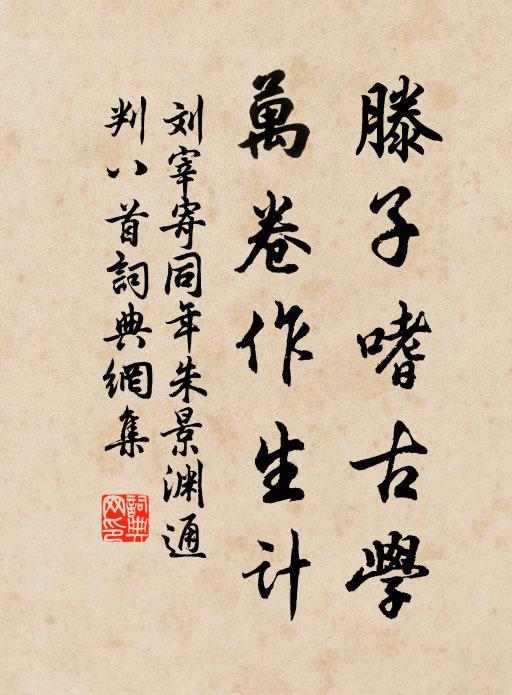 滕子嗜古學
萬卷作生計
刘宰寄同年朱景渊通
判八首詞典網集
詞典
网印